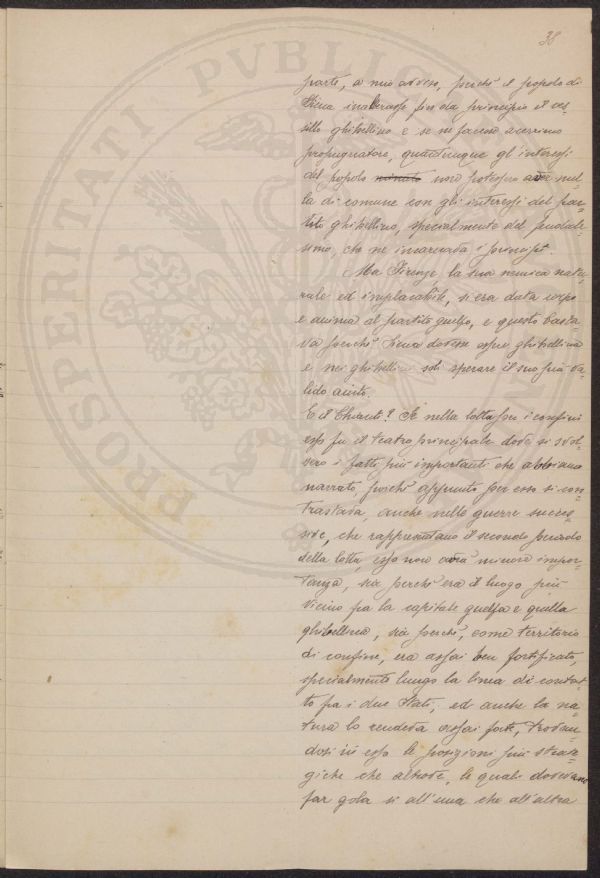 38
PROSPERITATI PVBLIC
parte, a mio avviso, perchè il popolo di
Siena inalberasse fin da principio il ves-
sillo ghibellino e se ne facesse acerrimo
propugnatore, quantunque gl'interessi
del popolo non potessero aver nul-
la di comune con gli interessi del par-
tito ghibellino, specialmente del feudale-
simo, che ne incarnava i principî.
Ma Firenze, la sua nemica natu-
rale ed implacabile, si era data corpo
e anima al partito guelfo, e questo basta-
va perchè Siena dovesse esser ghibellina
e nei ghibellini soli sperare il suo più va-
lido aiuto.
E il Chianti? Se nella lotta per i confini
esso fu il teatro principale dove si svol-
sero i fatti più importanti che abbiamo
narrato, poichè appunto per esso si con-
trastava, anche nelle guerre succes-
sive, che rappresentano il secondo periodo
della lotta, esso non avrà minore impor-
tanza, sia perchè era il luogo più
vicino fra la capitale guelfa e quella
ghibellina, sia perchè, come territorio
di confine, era assai ben fortificato,
specialmente lungo la linea di contat-
to fra i due Stati, ed anche la na-
tura lo rendeva assai forte, trovan-
dosi in esso le posizioni più strate-
giche che altrove, le quali dovevano
far gola sì all'una che all'altra